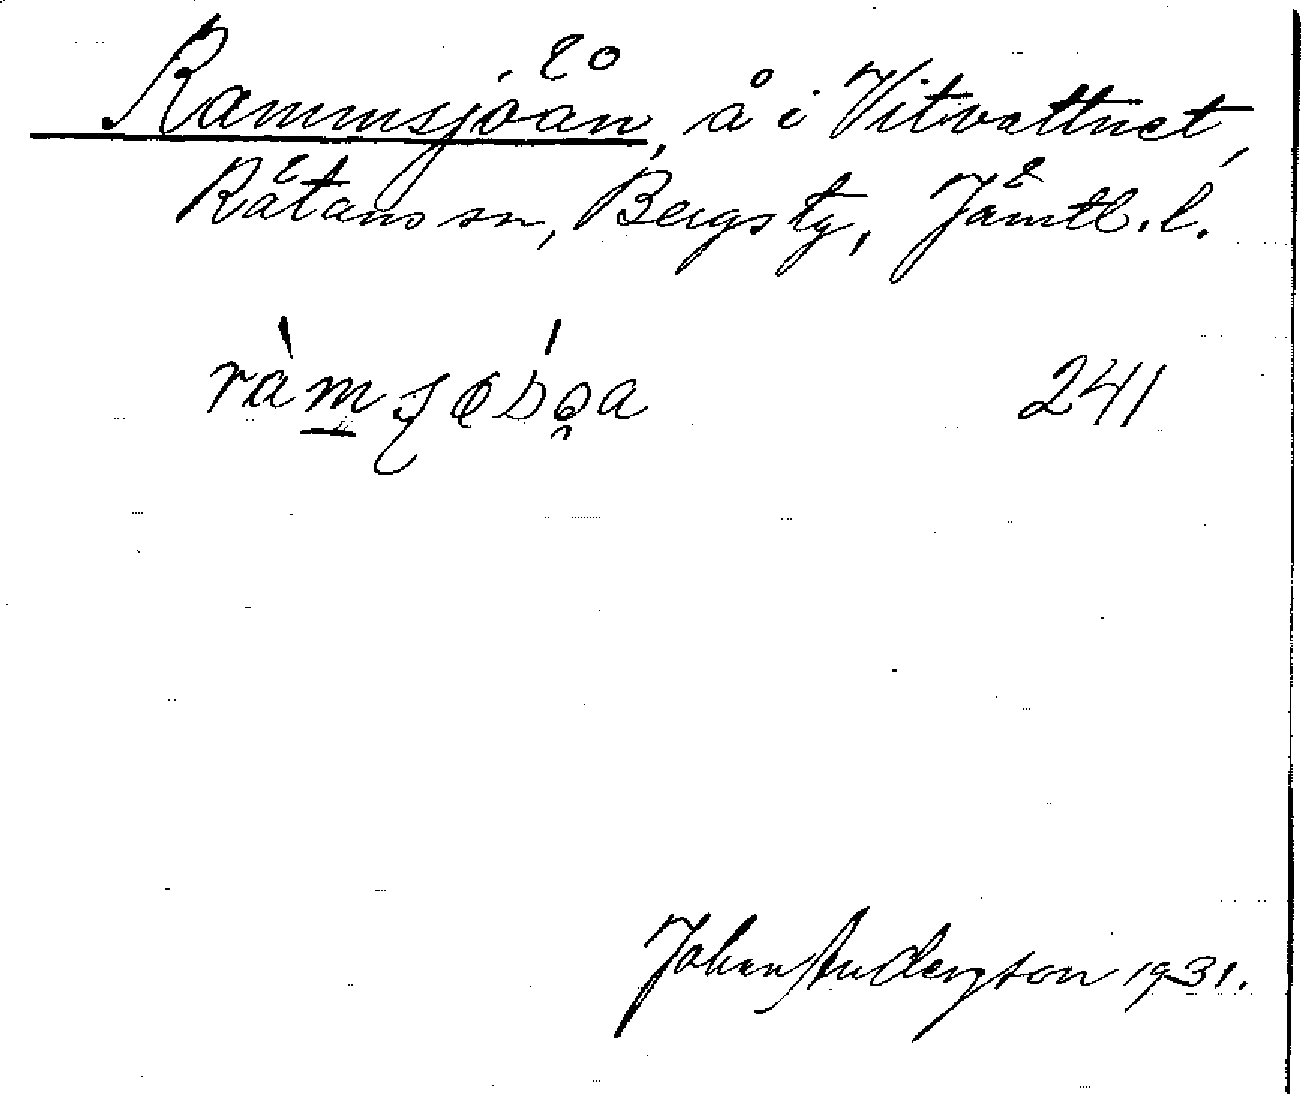 Rammsjöån, å i Vitvattnet,
Rätans sn, Bergs tg, Jämtl. l.
241
Johan Anderzson 1931.